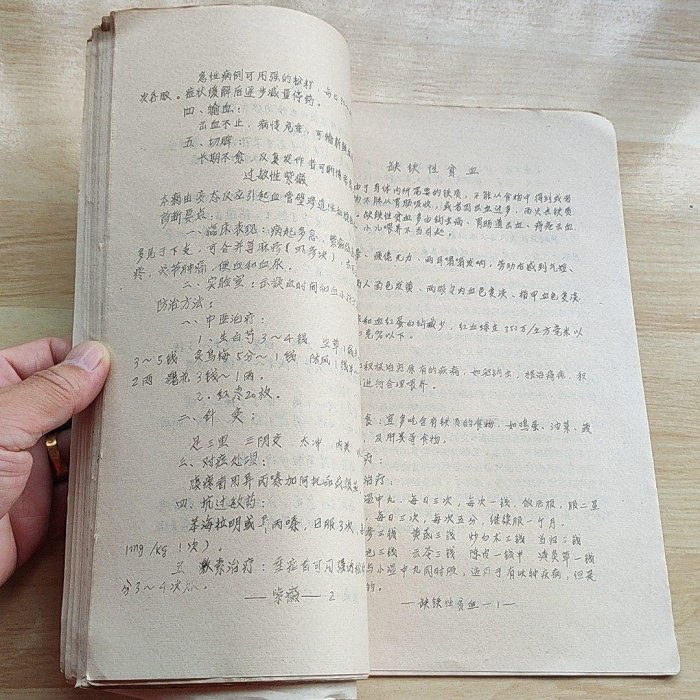 急性病例可用强的松
次吞服。症状缓解后逐步减量停药。
四、输血：
出血不止，病情危重，可输新鲜
五、切脾：
长期不愈 及复发作者可
过敏性紫癜
本病由变态反应引起血管壁渗透性
诊断要点：
一、临床表现：病起多急，紫癜
多见于下支，可合并荨麻疹（风疹块）
疼，关节肿痛，便血和血尿。
二、实验室：出缺血时间和血小
防治方法：
一、中医治疗：
1、生白芍3～4钱 甘草1钱
3～5钱 炙乌梅5分～1钱 防风1钱
2两 槐花3钱～1两。
2、红枣20枚。
二、针 灸：
足三里 三阴交 太冲 内关
三、对症处理：
腹疼者用异丙嗪加阿托品
四、抗过敏药：
苯海拉明或异丙嗪，日服3次
1mg/kg 1次）。
五、激素治疗：重症者可用强的松
分3～4次服
——紫癜——2
缺铁性贫血
由于身体内所需要的铁质，不能从食物中得到或者
不能从胃肠吸收，或者因出血过多，而失去铁质
缺铁性贫血多由钩虫病、胃肠道出血、痔疮出血
小儿喂养不当引起。
疲倦无力，两耳嗡嗡发响，劳动后感到气短、
人面色发黄、两眼皮内血色变淡、指甲血色变淡
和血红蛋白的减少，红血球在350万/立方毫米以
克以下。
积极治疗原有的疾病，如驱钩虫，根治痔疮，积
进行合理喂养。
食：宜多吃含有铁质的食物，如鸡蛋、油菜、菠
及肝类等食物。
疗：
治疗：
湿中丸，每日三次，每次一钱，饭后服，服二星
，每日三次，每次五分，继续服一个月。
参三钱 黄芪三钱 炒白术三钱 当归三钱
三钱 云苓三钱 陈皮一钱半 炙炙草一钱
与小湿中丸同时服，适用于有
—缺铁性贫血—1—